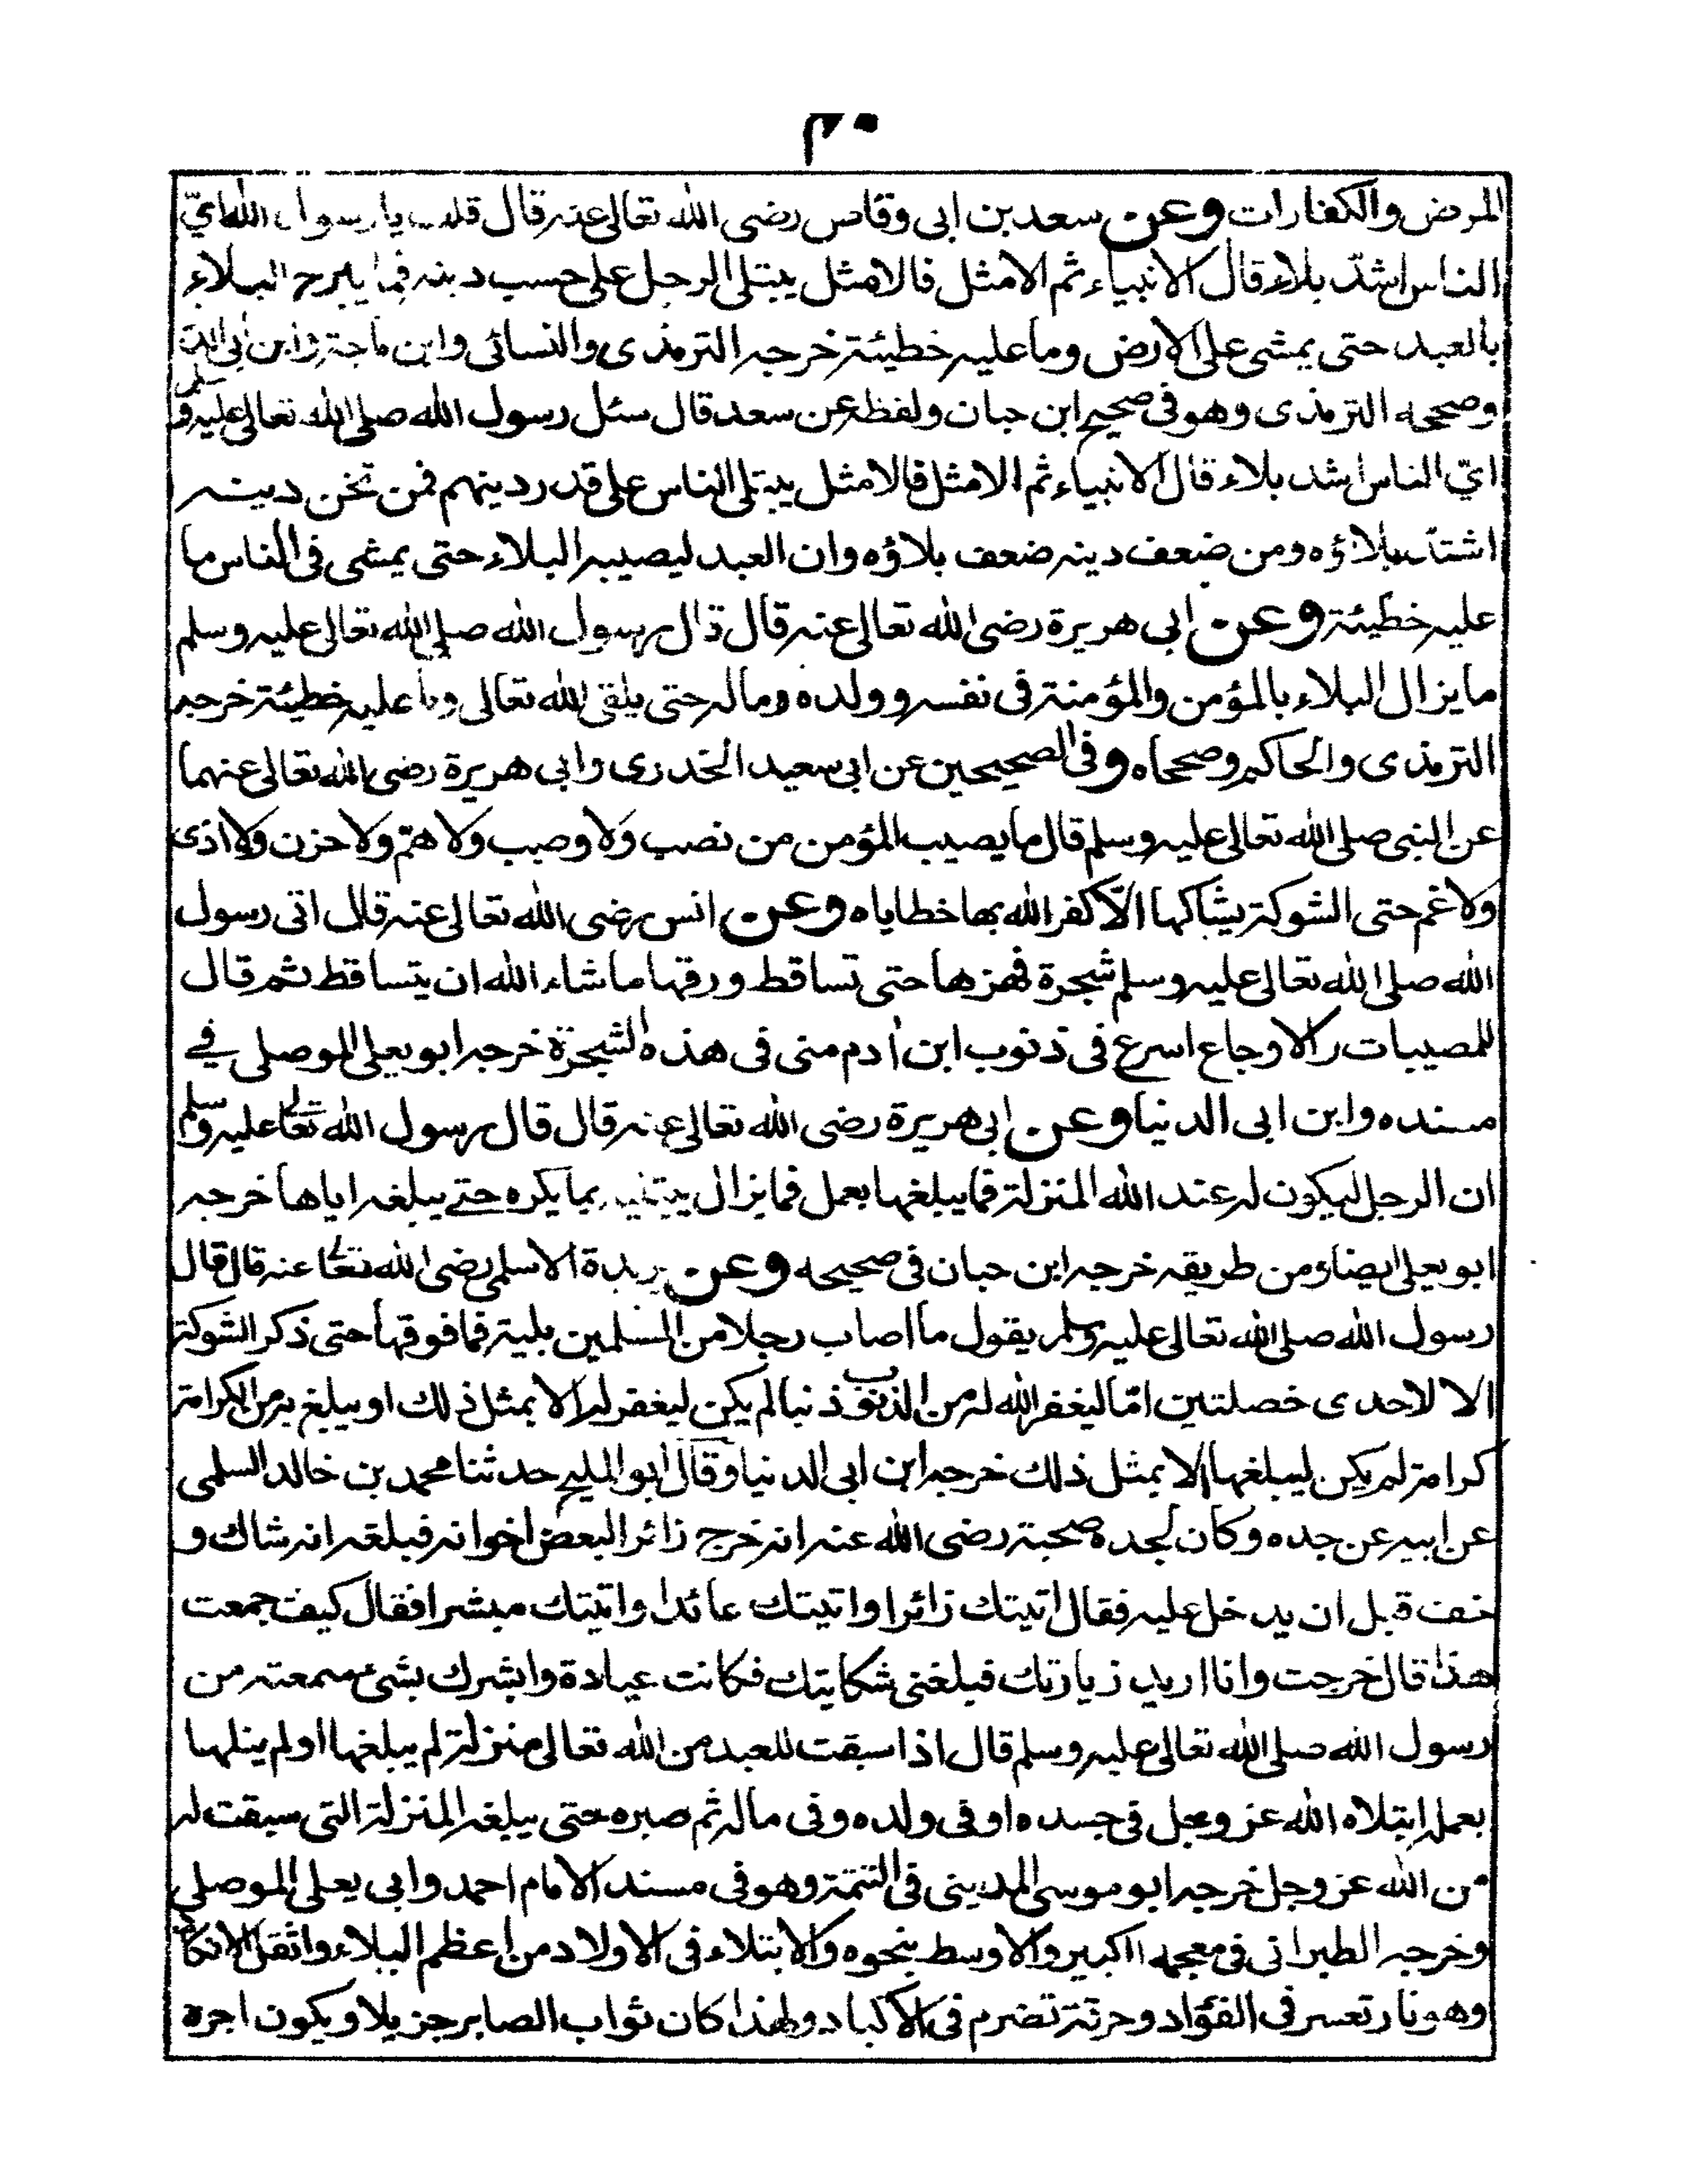 ٣٠
المرض والكفارات وعن سعد بن ابى وقاص رضى الله تعالى عنه قال قلت يا رسول الله اىّ
الناس اشدّ بلاء قال الانبياء ثم الامثل فالامثل يبتلى الرجل على حسب دينه فما يبرح البلاء
بالعبد حتى يمشى على الارض وما عليه خطيئة خرجه الترمذى والنسائى وابن ماجة وابن ابى الدنيا
وصححه الترمذى وهو فى صحيح ابن حبان ولفظه عن سعد قال سئل رسول الله صلى الله تعالى عليه وسلم
اىّ الناس اشد بلاء قال الانبياء ثم الامثل فالامثل يبتلى الناس على قدر دينهم فمن ثخن دينه
اشتد بلاؤه ومن ضعف دينه ضعف بلاؤه وان العبد ليصيبه البلاء حتى يمشى فى الناس ما
عليه خطيئة وعن ابى هريرة رضى الله تعالى عنه قال قال رسول الله صلى الله تعالى عليه وسلم
ما يزال البلاء بالمؤمن والمؤمنة فى نفسه وولده وماله حتى يلقى الله تعالى وما عليه خطيئة خرجه
الترمذى والحاكم وصححاه وفى الصحيحين عن ابى سعيد الخدرى وابى هريرة رضى الله تعالى عنهما
عن النبى صلى الله تعالى عليه وسلم قال ما يصيب المؤمن من نصب ولا وصب ولا همّ ولا حزن ولا اذى
ولا غم حتى الشوكة يشاكها الّا كفر الله بها خطاياه وعن انس رضى الله تعالى عنه قال اتى رسول
الله صلى الله تعالى عليه وسلم شجرة فهزها حتى تساقط ورقها ما شاء الله ان يتساقط ثم قال
للمصيبات والاوجاع اسرع فى ذنوب ابن ادم منى فى هذه الشجرة خرجه ابو يعلى الموصلى فے
مسنده وابن ابى الدنيا وعن ابى هريرة رضى الله تعالى عنه قال قال رسول الله تعالى عليه وسلم
ان الرجل ليكون له عند الله المنزلة فما يبلغها بعمل فما يزال يبتليه بما يكره حتے يبلغه اياها خرجه
ابو يعلى ايضا ومن طريقه خرجه ابن حبان فى صحيحه وعن بريدة الاسلمى رضى الله تعالى عنه قال قال
رسول الله صلى الله تعالى عليه وسلم يقول ما اصاب رجلا من المسلمين بلية فما فوقها حتى ذكر الشوكة
الا لاحدى خصلتين امّا ليغفر الله له من الذنوب ذنبا لم يكن ليغفر له الا بمثل ذلك او يبلغ به من الكرامة
كرامة لم يكن ليبلغها الا بمثل ذلك خرجه ابن ابى الدنيا وقال ابو المليح حدثنا محمد بن خالد السلمى
عن ابيه عن جده وكان لجده صحبة رضى الله عنه انه خرج زائرا لبعض اخوانه فبلغه انه شاك و
خف قبل ان يدخل عليه فقال اتيتك زائرا واتيتك عائدا واتيتك مبشرا فقال كيف جمعت
هذا قال خرجت وانا اريد زيارتك فبلغنى شكايتك فكانت عيادة وابشرك بشئ سمعته من
رسول الله صلى الله تعالى عليه وسلم قال اذا سبقت للعبد من الله تعالى منزلة لم يبلغها او لم ينلها
بعمله ابتلاه الله عز وجل فى جسده او فى ولده وفى ماله ثم صبره حتى يبلغه المنزلة التى سبقت له
من الله عز وجل خرجه ابو موسى المدينى فى التتمة وهو فى مسند الامام احمد وابى يعلى الموصلى
وخرجه الطبرانى فى معجمه الكبير والاوسط بنحوه والابتلاء فى الاولاد من اعظم البلاء واثقل الانكاد
وهو نار تعسر فى الفؤاد وحرقة تضرم فى الاكباد ولهذا كان ثواب الصابر جزيلا ويكون اجره